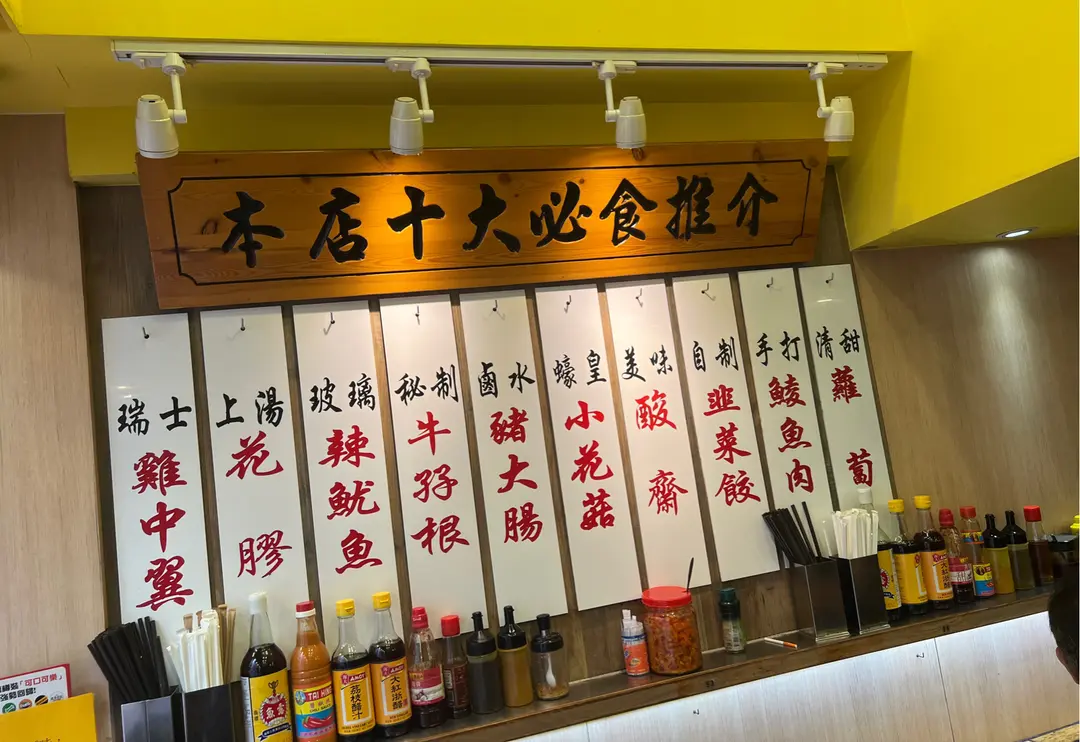 本店十大必食推介
瑞士
雞中翼
上湯
花膠
玻璃
辣魷魚
秘制
牛孖根
鹵水
豬大腸
蠔皇
小花菇
美味
酸齋
自制
韭菜餃
手打
鯪魚肉
清甜
蘿蔔
「可口可樂」
魚露
TAI HING
AMOY
荔枝醋汁
大紅浙醋